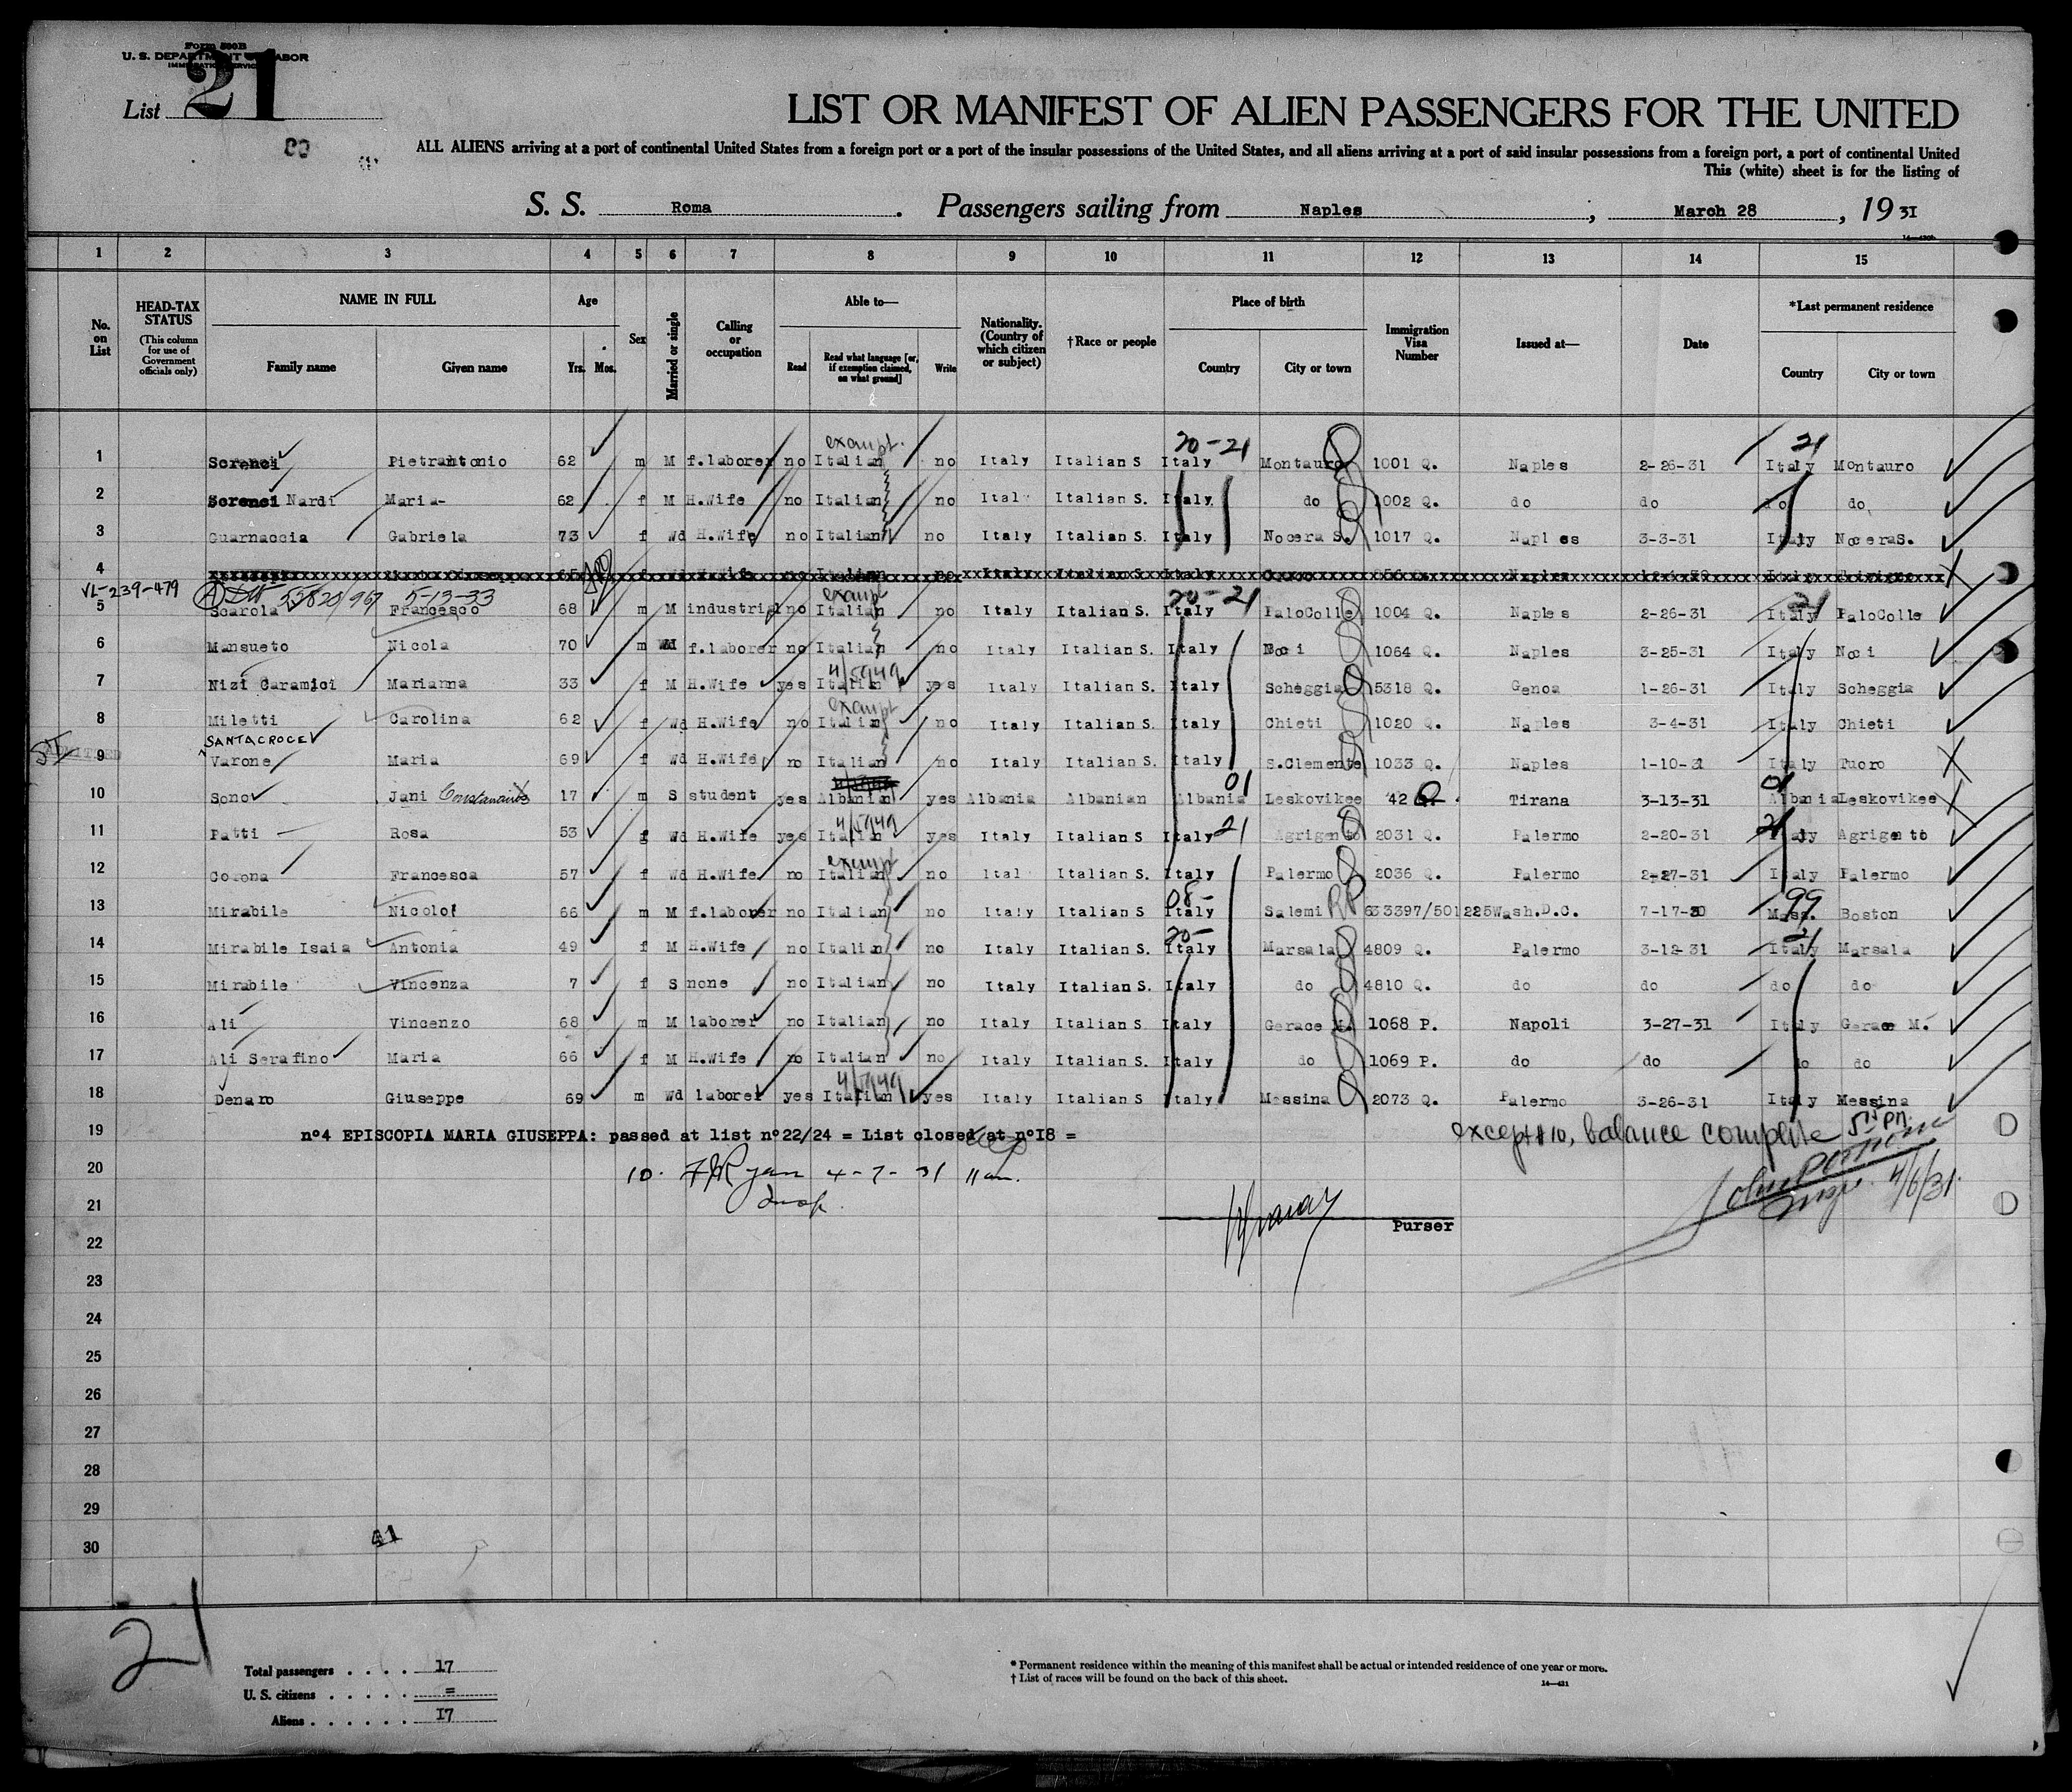 Form 500B
U. S. DEPARTMENT OF LABOR
IMMIGRATION SERVICE
List 21
LIST OR MANIFEST OF ALIEN PASSENGERS FOR THE UNITED
ALL ALIENS arriving at a port of continental United States from a foreign port or a port of the insular possessions of the United States, and all aliens arriving at a port of said insular possessions from a foreign port, a port of continental United
This (white) sheet is for the listing of
S. S. Roma. Passengers sailing from Naples, March 28, 19 31
1 2 3 4 5 6 7 8 9 10 11 12 13 14 15
No. on List
HEAD-TAX STATUS (This column for use of Government officials only)
NAME IN FULL Family name Given name
Age Yrs. Mos.
Sex
Married or single
Calling or occupation
Able to— Read Read what language [or, if exemption claimed, on what ground] Write
Nationality. (Country of which citizen or subject)
†Race or people
Place of birth Country City or town
Immigration Visa Number
Issued at—
Date
*Last permanent residence Country City or town
exempt. 20-21 21
1 Screnci Pietrantonio 62 m M f.laborer no Italian no Italy Italian S Italy Montauro 1001 Q. Naples 2-26-31 Italy Montauro
2 Screnci Nardi Maria- 62 f M H.Wife no Italian no Italy Italian S. Italy do 1002 Q. do do do do
3 Guarnaccia Gabriela 73 f Wd H.Wife no Italian no Italy Italian S. Italy Nocera S. 1017 Q. Naples 3-3-31 Italy NoceraS.
4
VL-239-479 5-13-33 exempt 20-21 21
5 Scarola Francesco 68 m M industrial no Italian no Italy Italian S. Italy PaloColle 1004 Q. Naples 2-26-31 Italy PaloColle
6 Mansueto Nicola 70 m Wd f.laborer no Italian no Italy Italian S. Italy Noci 1064 Q. Naples 3-25-31 Italy Noci
7 Nizi Caramici Marianna 33 f M H.Wife yes Italian yes Italy Italian S. Italy Scheggia 5318 Q. Genoa 1-26-31 Italy Scheggia
exempt
8 Miletti Carolina 62 f Wd H.Wife no Italian no Italy Italian S. Italy Chieti 1020 Q. Naples 3-4-31 Italy Chieti
SANTACROCE
ADMITTED
9 Varone Maria 69 f Wd H.Wife no Italian no Italy Italian S. Italy S.Clemente 1033 Q. Naples 1-10-31 Italy Tuoro
01 01
10 Sono Jani Constantinos 17 m S student yes Albanian yes Albania Albanian Albania Leskovikee 42 Q. Tirana 3-13-31 Albania Leskovikee
11 Patti Rosa 53 f Wd H.Wife yes Italian yes Italy Italian S Italy 21 Agrigento 2031 Q. Palermo 2-20-31 21 Italy Agrigento
exempt
12 Corona Francesca 57 f Wd H.Wife no Italian no Ital Italian S. Italy Palermo 2036 Q. Palermo 2-27-31 Italy Palermo
08- 99
13 Mirabile Nicolo' 66 m M f.laborer no Italian no Italy Italian S Italy Salemi RP 633397/501225 Wash.D.C. 7-17-30 Mass. Boston
20- 21
14 Mirabile Isaia Antonia 49 f M H.Wife no Italian no Italy Italian S. Italy Marsala 4809 Q. Palermo 3-12-31 Italy Marsala
15 Mirabile Vincenza 7 f S none no Italian no Italy Italian S. Italy do 4810 Q. do do do do
16 Ali Vincenzo 68 m M laborer no Italian no Italy Italian S Italy Gerace M. 1068 P. Napoli 3-27-31 Italy Gerace M.
17 Ali Serafino Maria 66 f M H.Wife no Italian no Italy Italian S. Italy do 1069 P. do do do do
18 Denaro Giuseppe 69 m Wd laborer yes Italian yes Italy Italian S Italy Messina 2073 Q. Palermo 3-26-31 Italy Messina
19 nº4 EPISCOPIA MARIA GIUSEPPA: passed at list nº22/24 = List closed at nº18 = except #10, balance complete
20 10. Ryan 4-7-31 11 am.
Insp.
4/6/31.
21
Purser
22
23
24
25
26
27
28
29
41
30
21
Total passengers . . . . 17
U. S. citizens . . . . . =
Aliens . . . . . . 17
* Permanent residence within the meaning of this manifest shall be actual or intended residence of one year or more.
† List of races will be found on the back of this sheet.